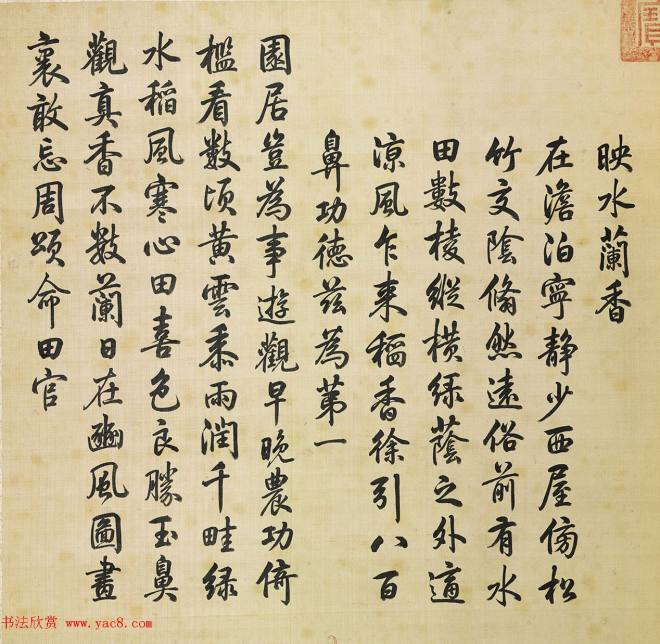 映水蘭香
在澹泊寧静少西屋傍松
竹交陰翛然遠俗前有水
田數棱縱横緑蔭之外適
凉風乍来稲香徐引八百
鼻功徳兹為第一
園居豈為事遊觀早晚農功倚
檻看數頃黄雲黍雨潤千畦緑
水稲風寒心田喜色良勝玉鼻
觀真香不數蘭日在豳風圖畫
裏敢忘周頌命田官
书法欣赏 www.yac8.com